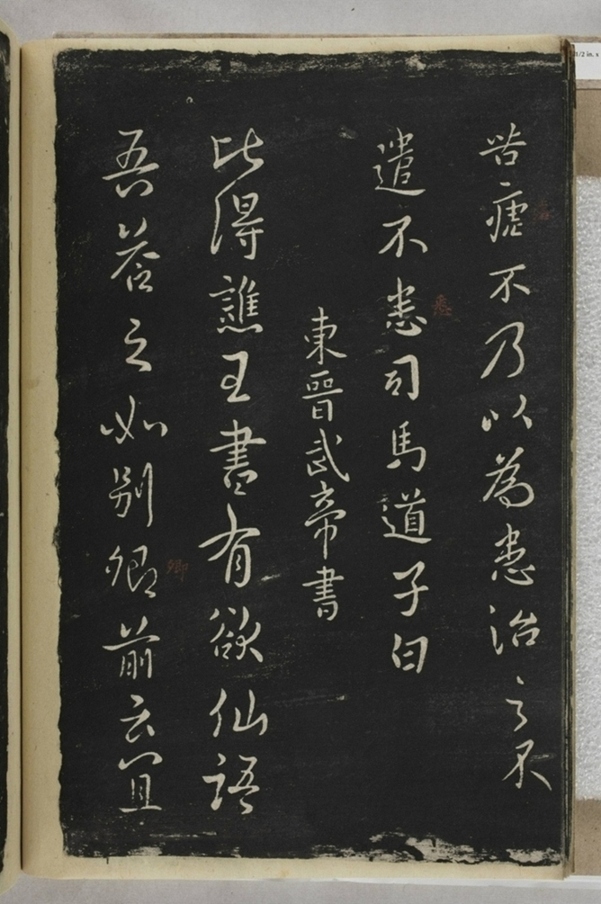 皆瘧不乃以為患治之不
遣不悉司馬道子白
東晉武帝書
比得譙王書有欲仙語
吾答之如別卿前云宜
卿